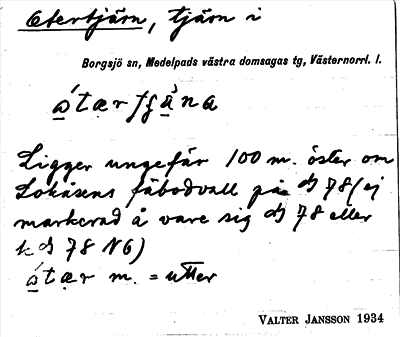 Otertjärn, tjärn i
Borgsjö sn, Medelpads västra domsagas tg, Västernorrl. l.
Ligger ungefär 100 m. öster om
Lokåsens fäbodvall på 78 (ej
markerad å vare sig 78 eller
78 N6)
m. = utter
VALTER JANSSON 1934